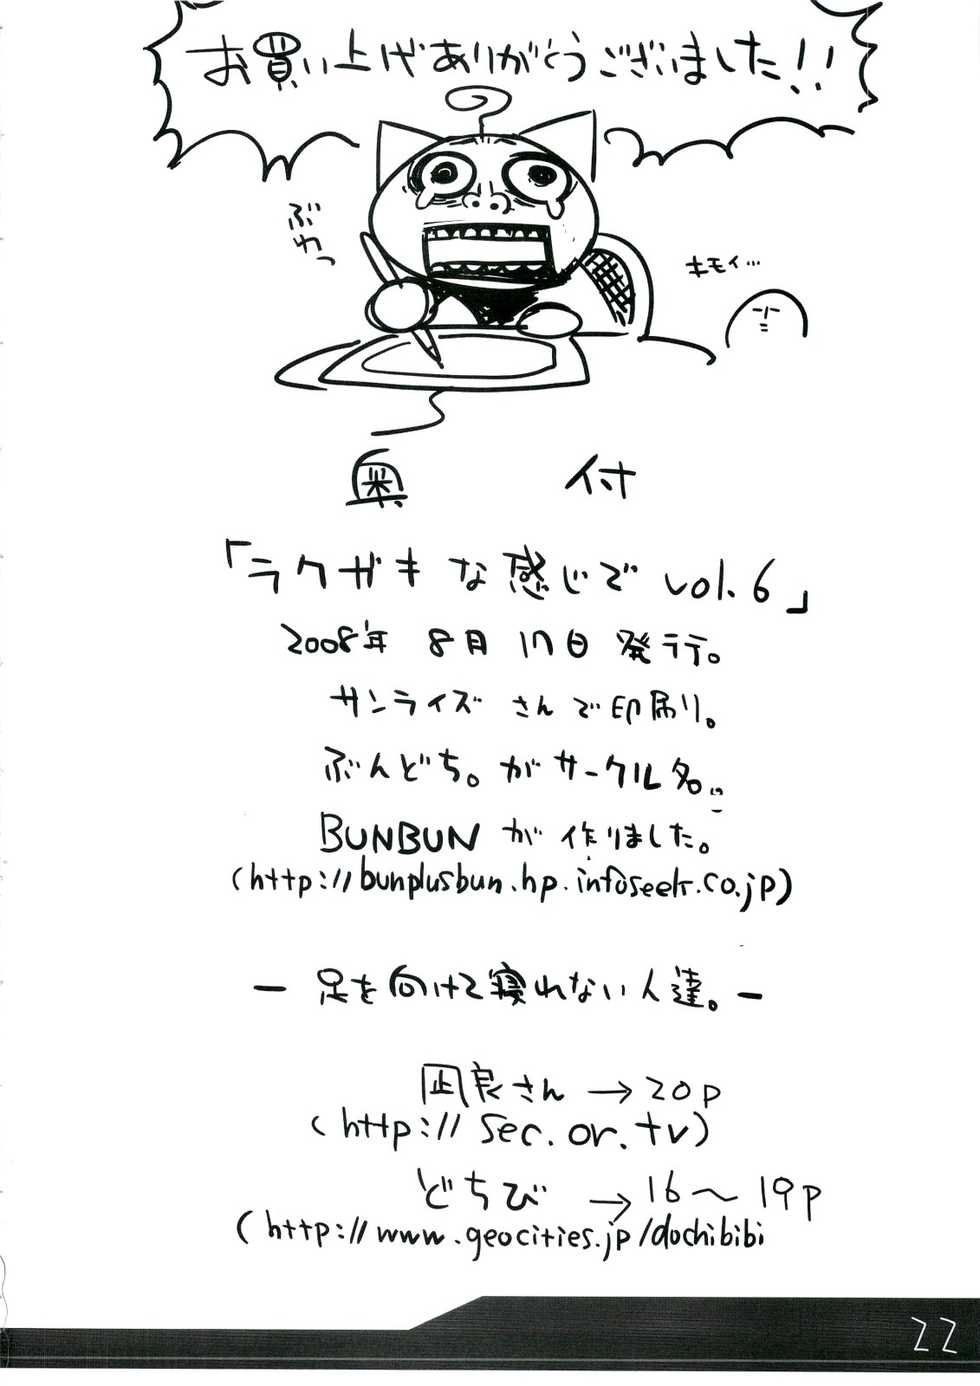 お買い上げありがとうございました!!
ぶわっ
キモィ…
奥付
「ラクガキな感じで vol.6」
2008年 8月 17日 発行。
サンライズ さんで印刷。
ぶんどち。がサークル名。
BUNBUN が 作りました。
(http://bunplusbun.hp.infoseek.co.jp)
— 足を向けて寝れない人達。—
凪良さん → 20p
(http://sec.or.tv)
どちび → 16〜19p
(http://www.geocities.jp/dochibibi
22